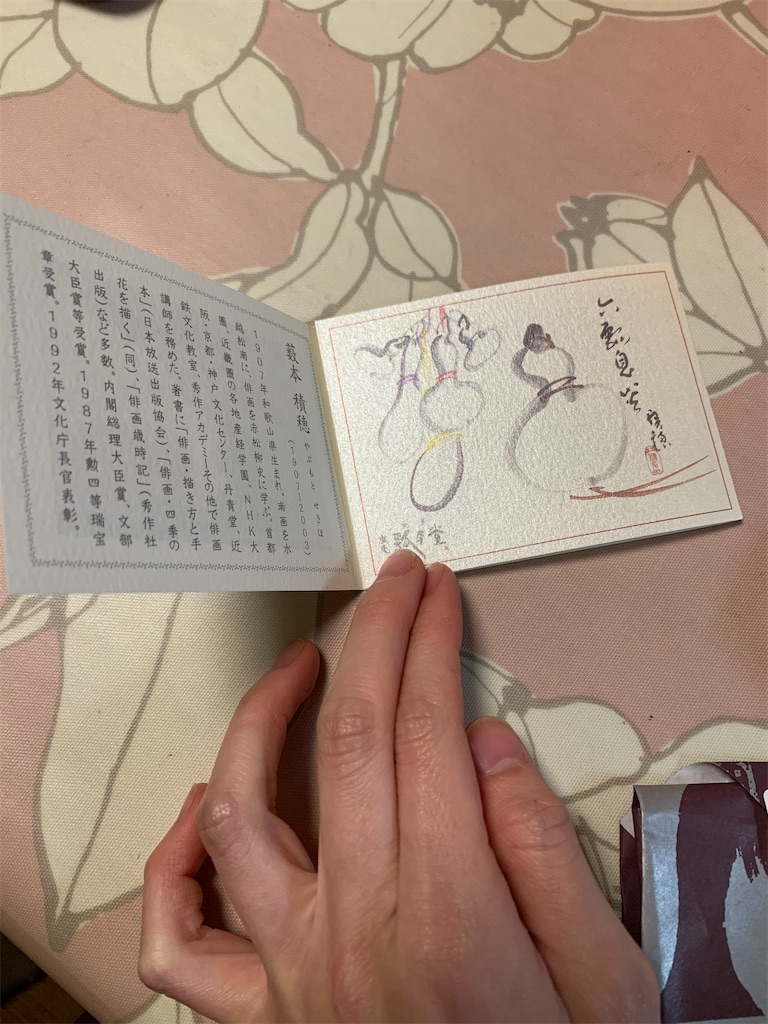 六瓢息災
積穂
藪本 積穂 やぶもと せきほ
(1907-2003)
1907年和歌山県生まれ。南画を水
越松南に、俳画を赤松柳史に学ぶ。首都
圏、近畿圏の各地産経学園、NHK大
阪・京都・神戸文化センター、丹青堂、近
鉄文化教室、秀作アカデミーその他で俳画
講師を務めた。著書に「俳画・描き方と手
本」(日本放送出版協会)、「俳画・四季の
花を描く」(同)、「俳画歳時記」(秀作社
出版)など多数。内閣総理大臣賞、文部
大臣賞等受賞。1987年勲四等瑞宝
章受賞。1992年文化庁長官表彰。